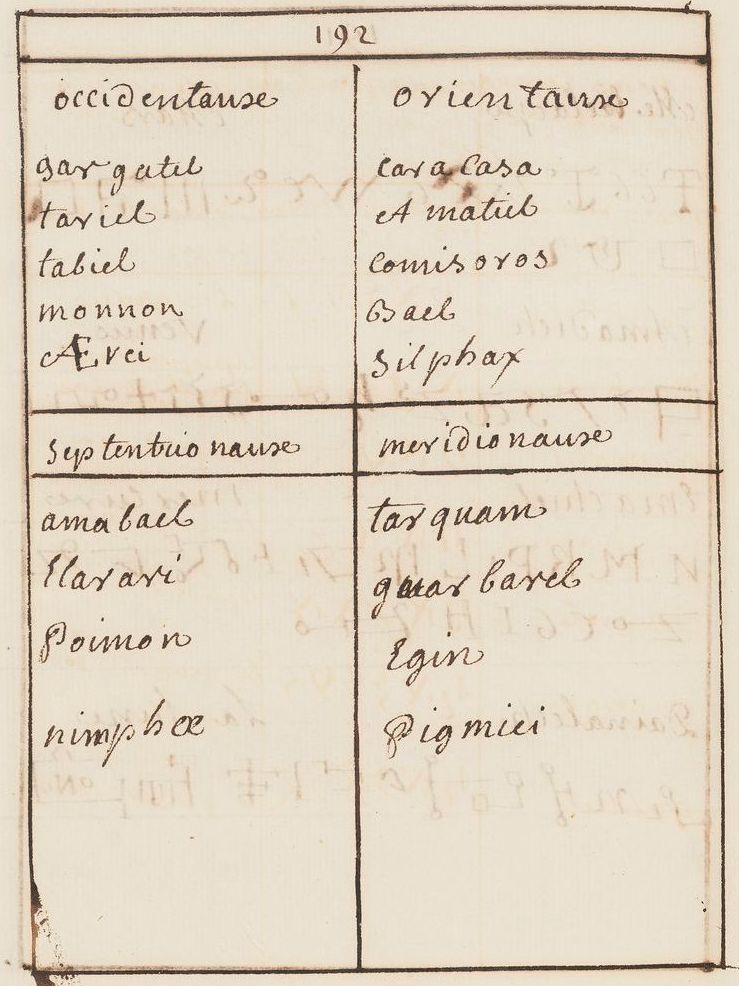 192
occidentause
orientause
gargatel
tariel
tabiel
monnon
Ærei
caracasa
Amatiel
comisoros
Bael
silphax
septentrionause
meridionause
amabael
Elarari
Poimon
nimphœ
tarquam
guarbarel
Egin
Pigmiei